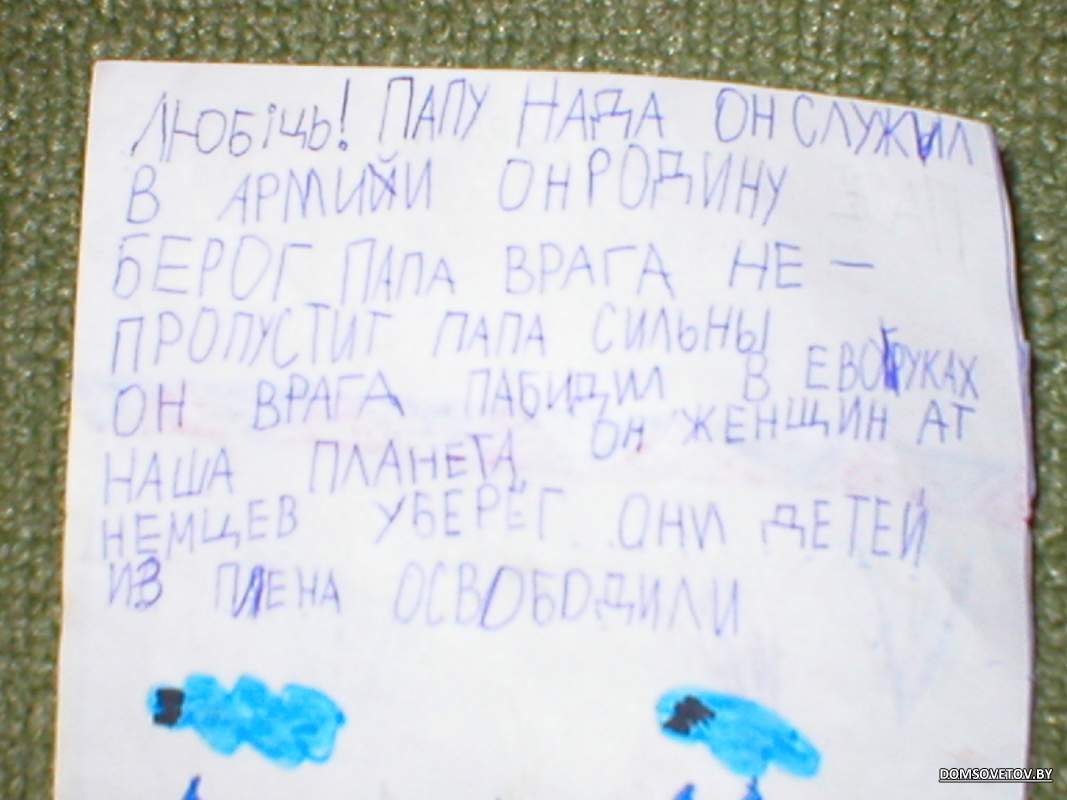 ЛЮБiЦЬ! ПАПУ НАДА ОН СЛУЖИЛ
В АРМИЙИ ОН РОДИНУ
БЕРОГ ПАПА ВРАГА НЕ —
ПРОПУСТИТ ПАПА СИЛЬНЫ
ОН ВРАГА ПАБИДИЛ В ЕВО РУКАХ
НАША ПЛАНЕТА ОН ЖЕНЩИН АТ
НЕМЦЕВ УБЕРЁГ ОНИ ДЕТЕЙ
ИЗ ПЛЕНА ОСВОБОДИЛИ
DOMSOVETOV.BY